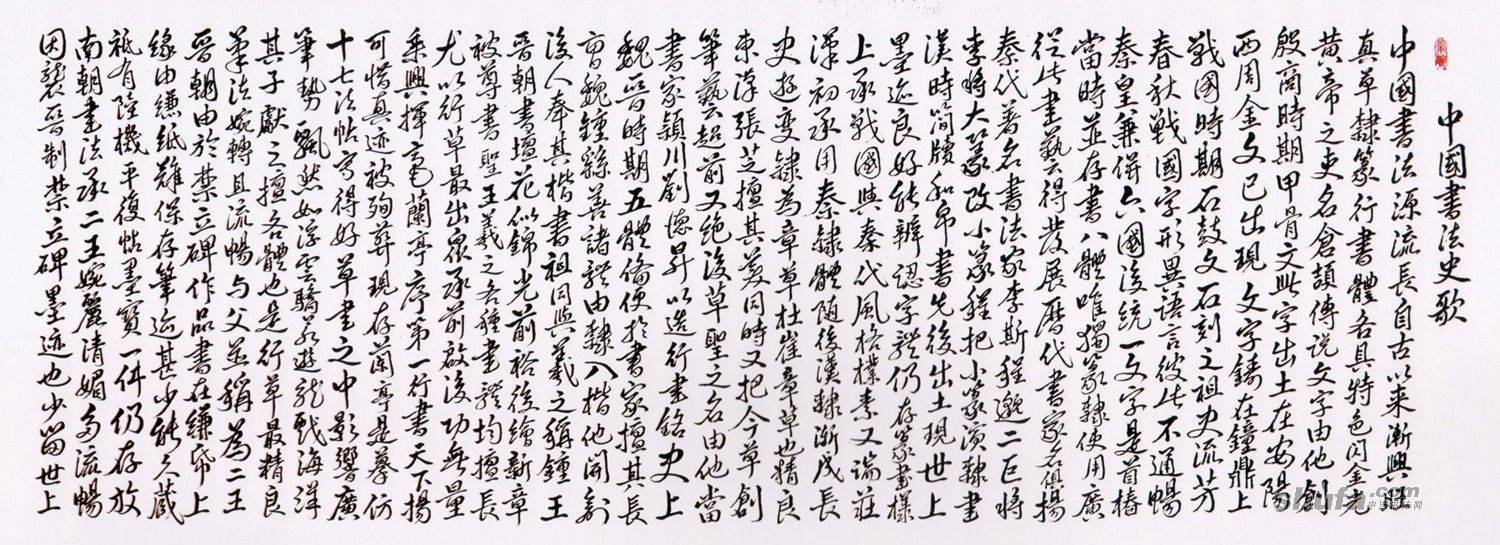 中國書法史歌
中國書法源流長自古以来漸興旺
真草隸篆行書體各具特色閃金光
黄帝之史名倉頡傳说文字由他創
殷商時期甲骨文此字出土在安陽
西周金文已出現文字鑄在鐘鼎上
戰国時期石鼓文石刻之祖史流芳
春秋戰國字形異語言彼此不通暢
秦皇兼併六國後統一文字是首樁
當時並存書八體唯獨篆隸使用廣
從此書藝云得發展歷代書家名俱揚
秦代著名書法家李斯程邈二巨將
李將大篆改小篆程把小篆演隸書
漢時简牘和帛書先後出土現世上
墨迹良好能辨認字體仍存篆書樣
上承戰國與秦代風格樸素又端莊
漢初承用秦隸體随後漢隸漸成長
史遊变隸為章草杜崔章草也精良
東漢張芝擅其美同時又把今草創
筆藝超前又绝後草聖之名由他當
書家潁川劉德昇以造行書銘史上
魏晋時期五體備便於書家擅其長
曹魏鍾繇善諸體由隸入楷他開創
後人奉其楷書祖同與羲之稱鍾王
晋朝書壇花似錦光前裕後繪新章
被尊書聖王羲之各種書體均擅長
尤以行草最出眾承前啟後功無量
乘興揮毫蘭亭序第一行書天下揚
可惜真迹被殉葬現存蘭亭是摹仿
十七法帖寫得好草書之中影響廣
筆勢飄然如浮雲驕若遊龍戲海洋
其子獻之擅各體也是行草最精良
筆法婉轉且流暢与父並稱為二王
晋朝由於禁立碑作品書在縑帛上
緣由縑紙難保存筆迹甚少能久藏
祗有陸機平復帖墨寶一件仍存放
南朝書法承二王婉麗清媚多流暢
因襲晋制禁立碑墨迹也少留世上
shufa.com